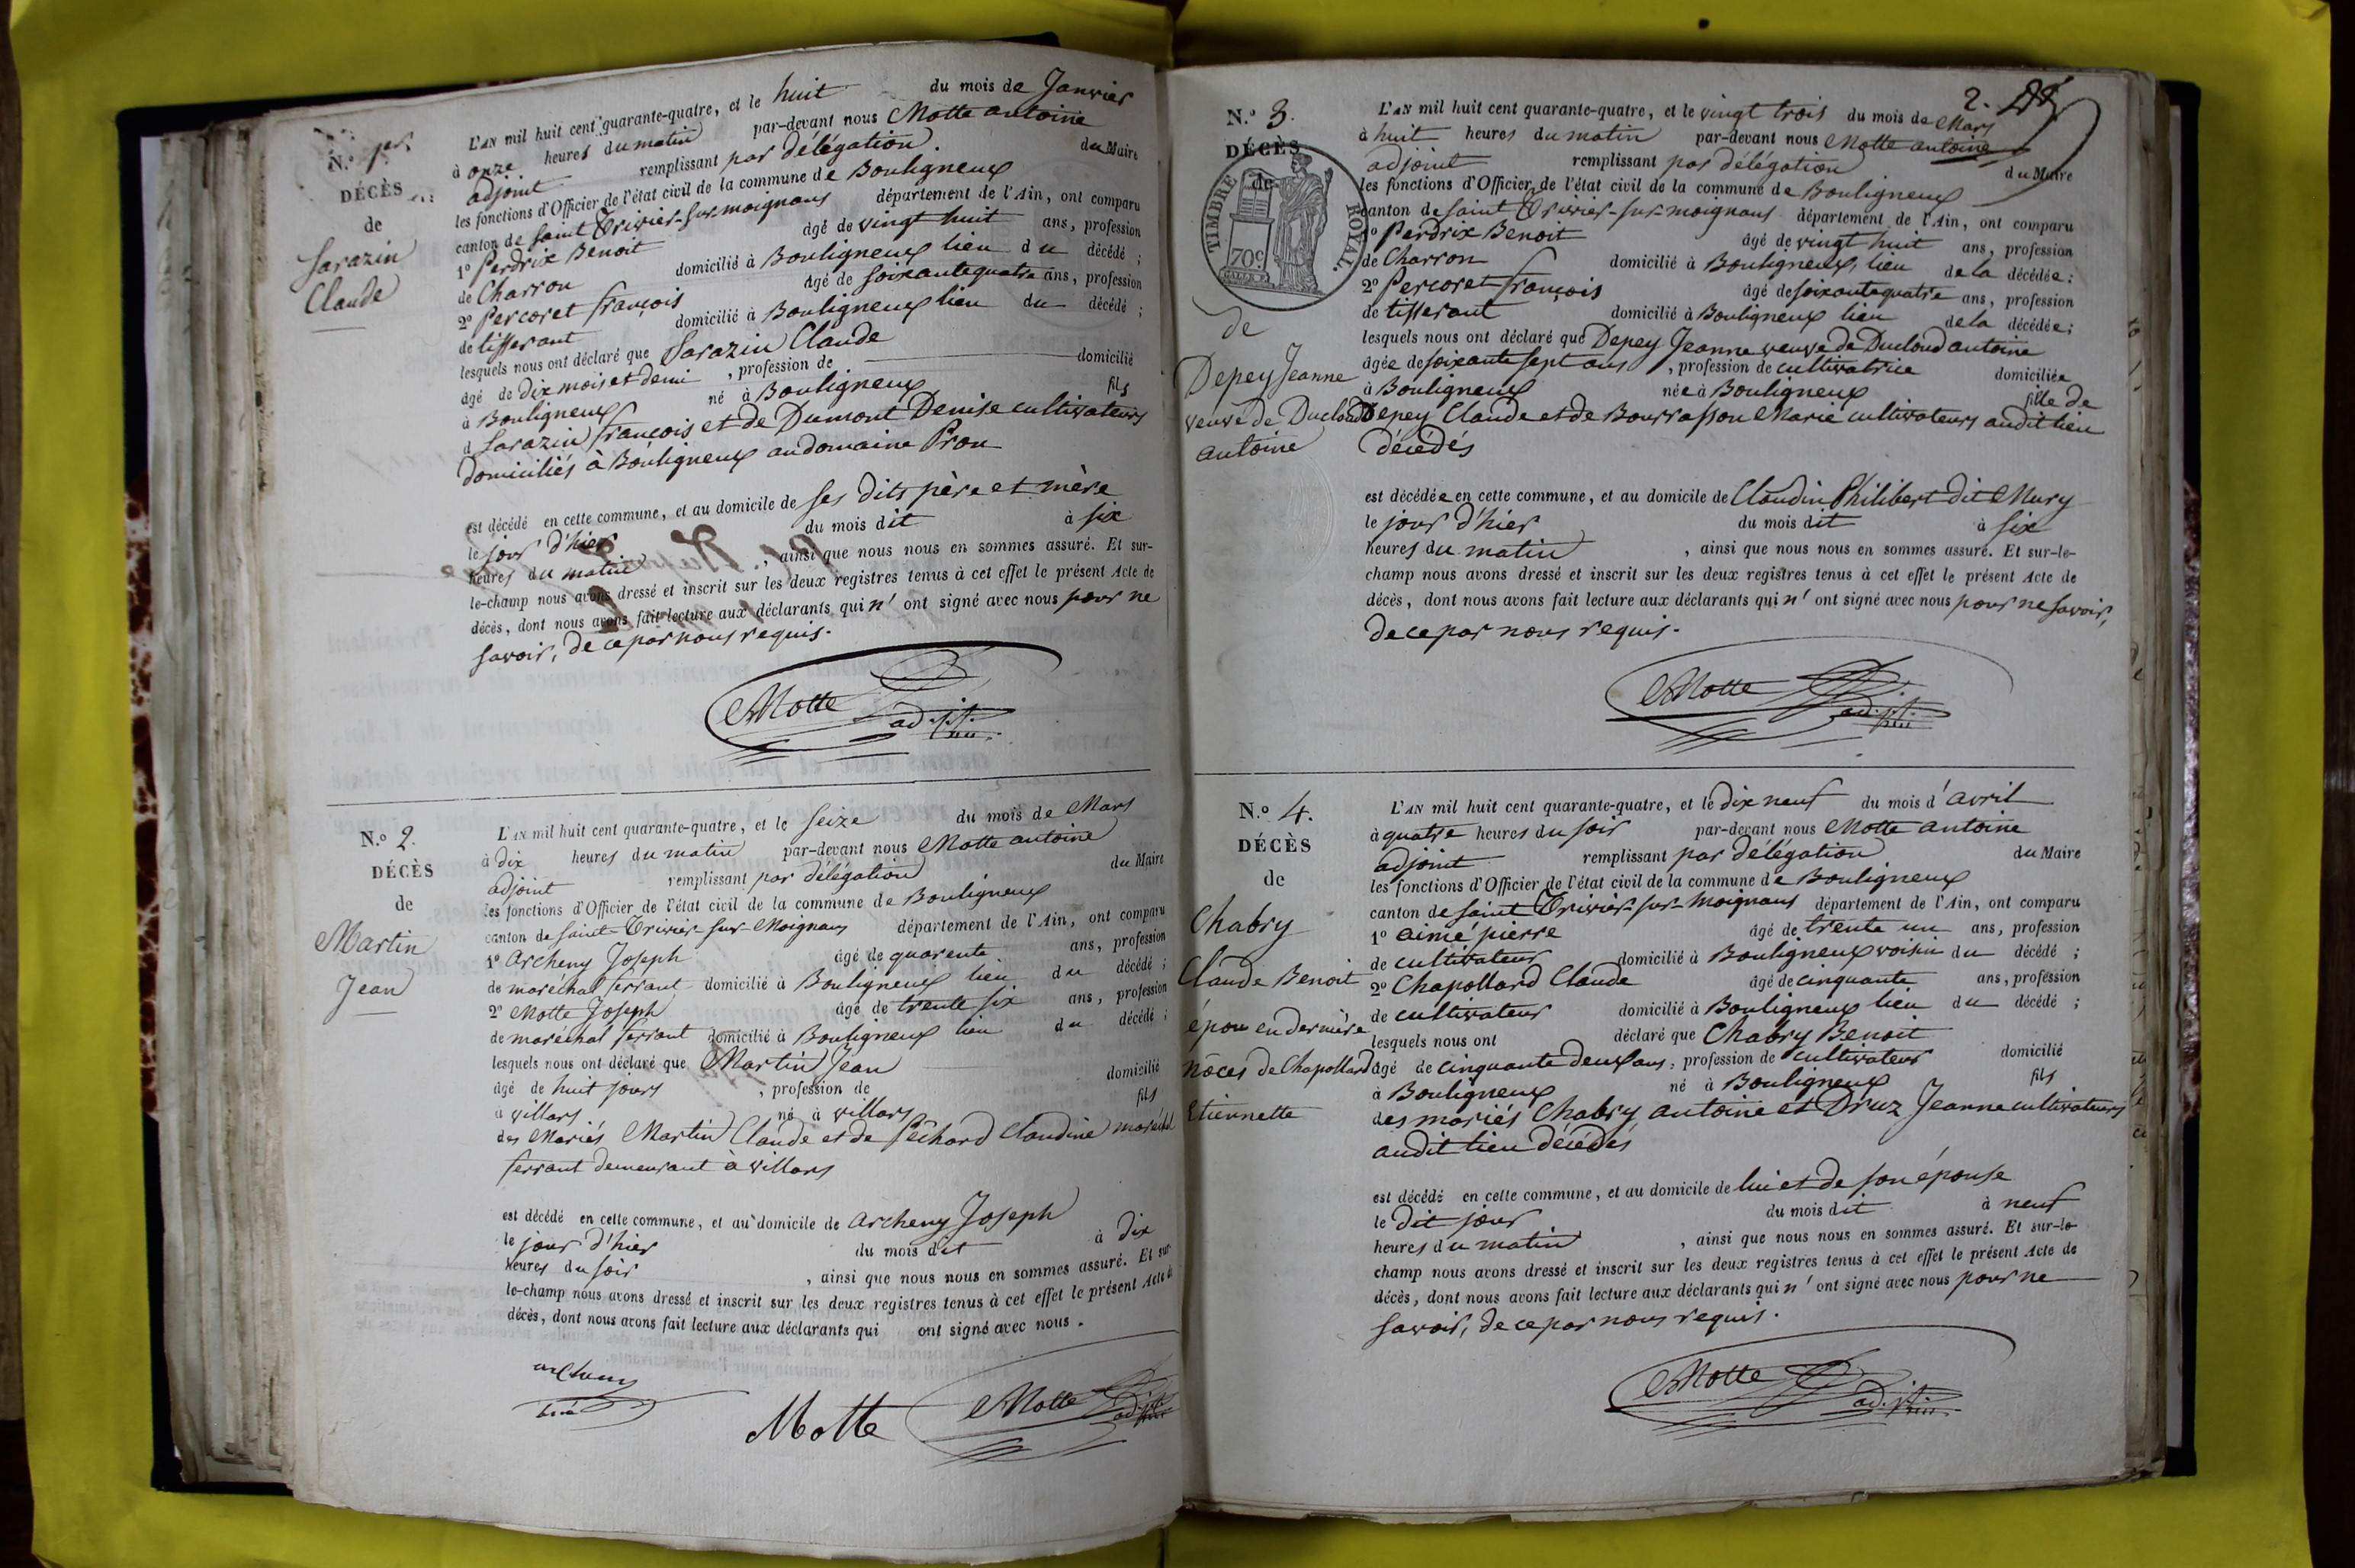 N.º 1er.
DÉCÈS
de
Sarazin
Claude
L'AN mil huit cent quarante-quatre, et le huit du mois de Janvier
à onze heures du matin par-devant nous Motte antoine
adjoint remplissant par délégation. du Maire
les fonctions d'Officier de l'état civil de la commune de Bouligneux
canton de Saint Trivier-sur-moignans département de l'Ain, ont comparu
1º Perdrix Benoit âgé de vingt huit ans, profession
de Charron domicilié à Bouligneux lieu du décédé;
2º Percoret françois âgé de soixante quatre ans, profession
de tisserant domicilié à Bouligneux lieu du décédé;
lesquels nous ont déclaré que Sarazin Claude
âgé de dix mois et demi, profession de domicilié
à Bouligneux né à Bouligneux fils
d Sarazin françois et de Dumont Denise cultivateurs
domiciliés à Bouligneux au domaine Pron
est décédé en cette commune, et au domicile de ses dits père et mère
le jour d'hier du mois dit à six
heures du matin, ainsi que nous nous en sommes assuré. Et sur-
le-champ nous avons dressé et inscrit sur les deux registres tenus à cet effet le présent Acte de
décès, dont nous avons fait lecture aux déclarants qui n' ont signé avec nous pour ne
savoir, de ce par nous requis.
Motte adjt.
N.º 2.
DÉCÈS
de
Martin
Jean
L'AN mil huit cent quarante-quatre, et le seize du mois de Mars
à dix heures du matin par-devant nous Motte antoine
adjoint remplissant par délégation du Maire
les fonctions d'Officier de l'état civil de la commune de Bouligneux
canton de Saint-Trivier-sur-Moignans département de l'Ain, ont comparu
1º Archeny Joseph âgé de quarente ans, profession
de maréchal ferrant domicilié à Bouligneux lieu du décédé;
2º Motte Joseph âgé de trente six ans, profession
de maréchal ferrant domicilié à Bouligneux lieu du décédé;
lesquels nous ont déclaré que Martin Jean
âgé de huit jours, profession de domicilié
à villars né à villars fils
des Mariés Martin Claude et de Pêchard Claudine maréchal
ferrant demeurant à villars
est décédé en cette commune, et au domicile de Archeny Joseph
le jour d'hier du mois dit à dix
heures du soir, ainsi que nous nous en sommes assuré. Et sur
le-champ nous avons dressé et inscrit sur les deux registres tenus à cet effet le présent Acte de
décès, dont nous avons fait lecture aux déclarants qui ont signé avec nous.
archeny
Motte Motte adjt.
2.
N.º 3.
DÉCÈS
de
TIMBRE ROYAL.
70c
de
Depey Jeanne
veuve de Ducloud
antoine
L'AN mil huit cent quarante-quatre, et le vingt trois du mois de Mars
à huit heures du matin par-devant nous Motte antoine
adjoint remplissant par délégation du Maire
les fonctions d'Officier de l'état civil de la commune de Bouligneux
canton de Saint Trivier-sur-moignans département de l'Ain, ont comparu
1º Perdrix Benoit âgé de vingt huit ans, profession
de Charron domicilié à Bouligneux, lieu de la décédée:
2º Percoret françois âgé de soixante quatre ans, profession
de tisserant domicilié à Bouligneux lieu de la décédée;
lesquels nous ont déclaré que Depey Jeanne veuve de Ducloud antoine
âgée de soixante sept ans, profession de cultivatrice domiciliée
à Bouligneux née à Bouligneux fille de
Depey Claude et de Bourrasson Marie cultivateurs audit lieu
décédés
est décédée en cette commune, et au domicile de Claudin Philibert dit Mury
le jour d'hier du mois dit à six
heures du matin, ainsi que nous nous en sommes assuré. Et sur-le-
champ nous avons dressé et inscrit sur les deux registres tenus à cet effet le présent Acte de
décès, dont nous avons fait lecture aux déclarants qui n' ont signé avec nous pour ne savoir,
de ce par nous requis.
Motte adjt.
N.º 4.
DÉCÈS
de
Chabry
Claude Benoit
époux en dernière
nôces de Chapollard
Etiennette
L'AN mil huit cent quarante-quatre, et le dix neuf du mois d'avril
à quatre heures du soir par-devant nous Motte antoine
adjoint remplissant par délégation du Maire
les fonctions d'Officier de l'état civil de la commune de Bouligneux
canton de Saint Trivier-sur-Moignans département de l'Ain, ont comparu
1º aimé pierre âgé de trente un ans, profession
de cultivateur domicilié à Bouligneux voisin du décédé;
2º Chapollard Claude âgé de cinquante ans, profession
de cultivateur domicilié à Bouligneux lieu du décédé;
lesquels nous ont déclaré que Chabry Benoit
âgé de cinquante deux ans, profession de cultivateur domicilié
à Bouligneux né à Bouligneux fils
des mariés Chabry antoine et Druz Jeanne cultivateurs
audit lieu décédés
est décédé en cette commune, et au domicile de lui et de son épouse
le dit jour du mois dit à neuf
heures du matin, ainsi que nous nous en sommes assuré. Et sur-le-
champ nous avons dressé et inscrit sur les deux registres tenus à cet effet le présent Acte de
décès, dont nous avons fait lecture aux déclarants qui n' ont signé avec nous pour ne
savoir, de ce par nous requis.
Motte adjt.